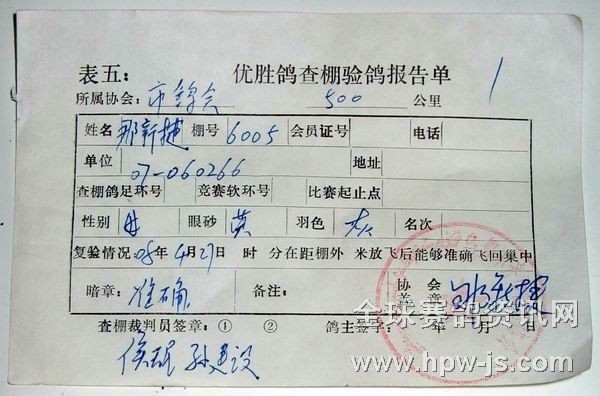 1
表五： 优胜鸽查棚验鸽报告单
所属协会：市鸽会 500 公里
姓名 那新捷 棚号 6005 会员证号 电话
单位 地址
07-060266
查棚鸽足环号 竞赛软环号 比赛起止点
性别 雄 眼砂 黄 羽色 灰 名次
复验情况 08 年 4 月 27 日 时 分在距棚外 米放飞后能够准确飞回巢中
暗章： 准确 备注： 协会盖章
查棚裁判员签章：① ② 鸽主签字： 年 月 日
孙建设
全球赛鸽资讯网
www.hpw-js.com